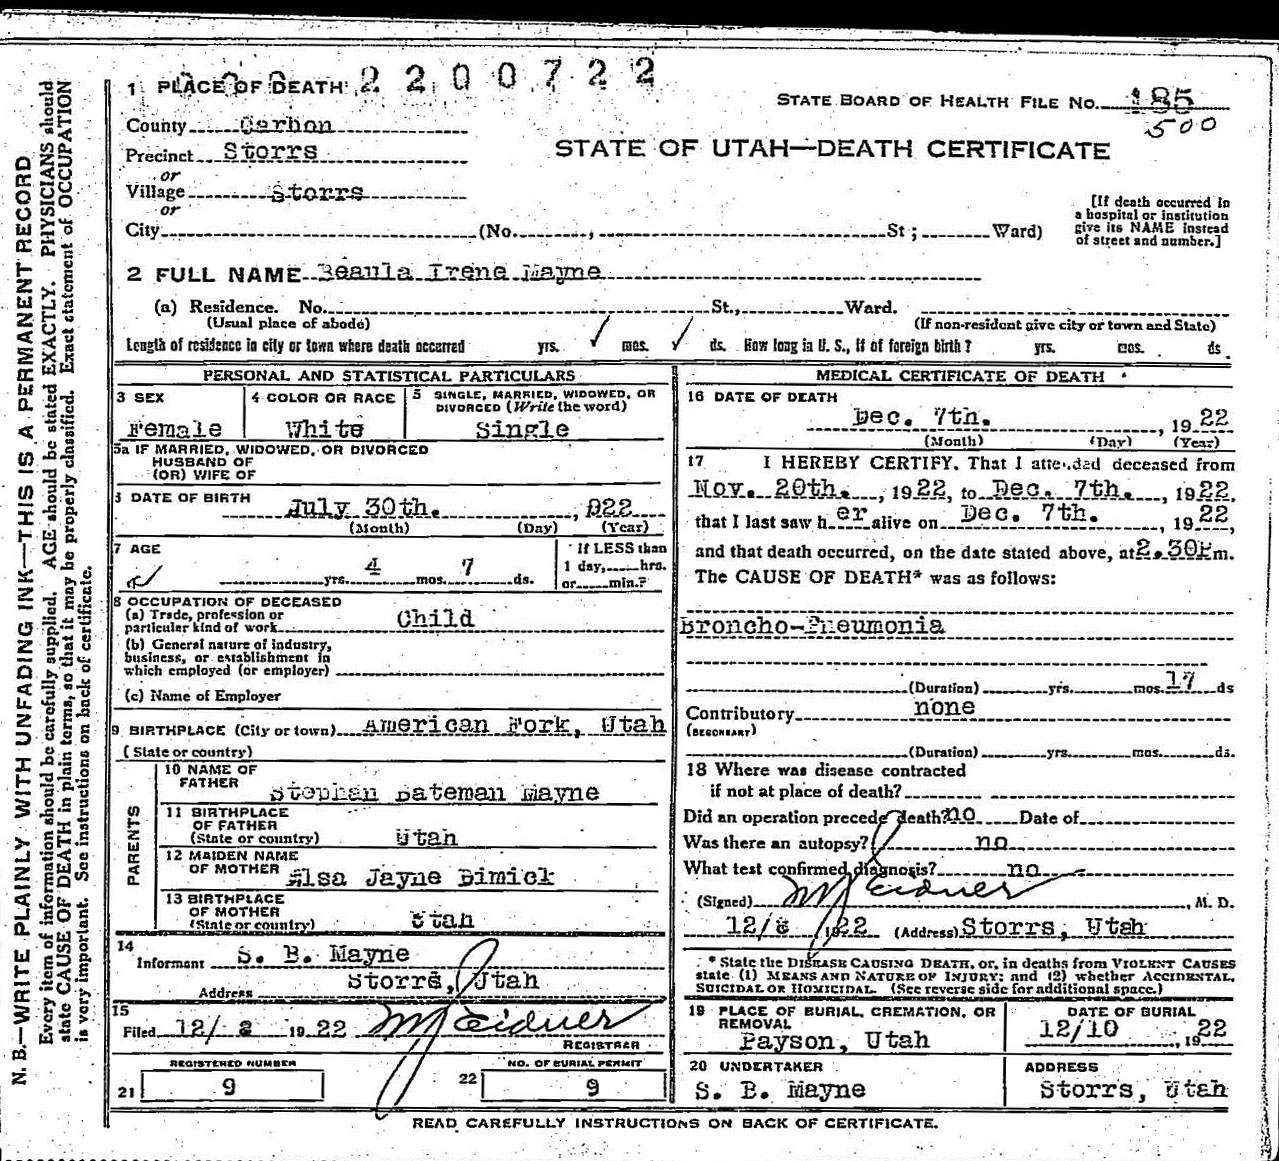 1 PLACE OF DEATH 2200722
STATE BOARD OF HEALTH FILE No. 185
500
County Carbon
Precinct Storrs
or
Village Storrs
or
City (No. , St ; Ward)
STATE OF UTAH—DEATH CERTIFICATE
[If death occurred in
a hospital or institution
give its NAME instead
of street and number.]
2 FULL NAME Beaula Irene Mayne
(a) Residence. No. St., Ward.
(Usual place of abode) (If non-resident give city or town and State)
Length of residence in city or town where death occurred yrs. ✓ mos. ✓ ds. How long in U. S., if of foreign birth? yrs. mos. ds
PERSONAL AND STATISTICAL PARTICULARS
3 SEX
Female
4 COLOR OR RACE
White
5 SINGLE, MARRIED, WIDOWED, OR
DIVORCED (Write the word)
Single
5a IF MARRIED, WIDOWED, OR DIVORCED
HUSBAND OF
(OR) WIFE OF
6 DATE OF BIRTH July 30th. , 922
(Month) (Day) (Year)
7 AGE
yrs. 4 mos. 7 ds.
If LESS than
1 day, hrs.
or min.?
8 OCCUPATION OF DECEASED
(a) Trade, profession or
particular kind of work Child
(b) General nature of industry,
business, or establishment in
which employed (or employer)
(c) Name of Employer
9 BIRTHPLACE (City or town) American Fork, Utah
(State or country)
PARENTS
10 NAME OF
FATHER Stephan Bateman Mayne
11 BIRTHPLACE
OF FATHER
(State or country) Utah
12 MAIDEN NAME
OF MOTHER Elsa Jayne Dimick
13 BIRTHPLACE
OF MOTHER
(State or country) Utah
14
Informant S. B. Mayne
Address Storrs, Utah
15
Filed 12/8 1922 Eidner
REGISTRAR
REGISTERED NUMBER
21 9
NO. OF BURIAL PERMIT
22 9
MEDICAL CERTIFICATE OF DEATH
16 DATE OF DEATH
Dec. 7th. , 1922
(Month) (Day) (Year)
17 I HEREBY CERTIFY, That I attended deceased from
Nov. 20th. , 1922, to Dec. 7th. , 1922.
that I last saw her alive on Dec. 7th. , 1922,
and that death occurred, on the date stated above, at 2.30P m.
The CAUSE OF DEATH* was as follows:
Broncho-Pneumonia
(Duration) yrs. mos. 17 ds
Contributory none
(SECONDARY)
(Duration) yrs. mos. ds.
18 Where was disease contracted
if not at place of death?
Did an operation precede death? no Date of
Was there an autopsy? no
What test confirmed diagnosis? no
(Signed) Eidner , M. D.
12/8 , 1922 (Address) Storrs, Utah
* State the DISEASE CAUSING DEATH, or, in deaths from VIOLENT CAUSES
state (1) MEANS AND NATURE OF INJURY; and (2) whether ACCIDENTAL,
SUICIDAL OR HOMICIDAL. (See reverse side for additional space.)
19 PLACE OF BURIAL, CREMATION, OR
REMOVAL
Payson, Utah
DATE OF BURIAL
12/10 , 1922
20 UNDERTAKER
S. B. Mayne
ADDRESS
Storrs, Utah
READ CAREFULLY INSTRUCTIONS ON BACK OF CERTIFICATE.
N. B.—WRITE PLAINLY WITH UNFADING INK—THIS IS A PERMANENT RECORD
Every item of information should be carefully supplied. AGE should be stated EXACTLY. PHYSICIANS should
state CAUSE OF DEATH in plain terms, so that it may be properly classified. Exact statement of OCCUPATION
is very important. See instructions on back of certificate.